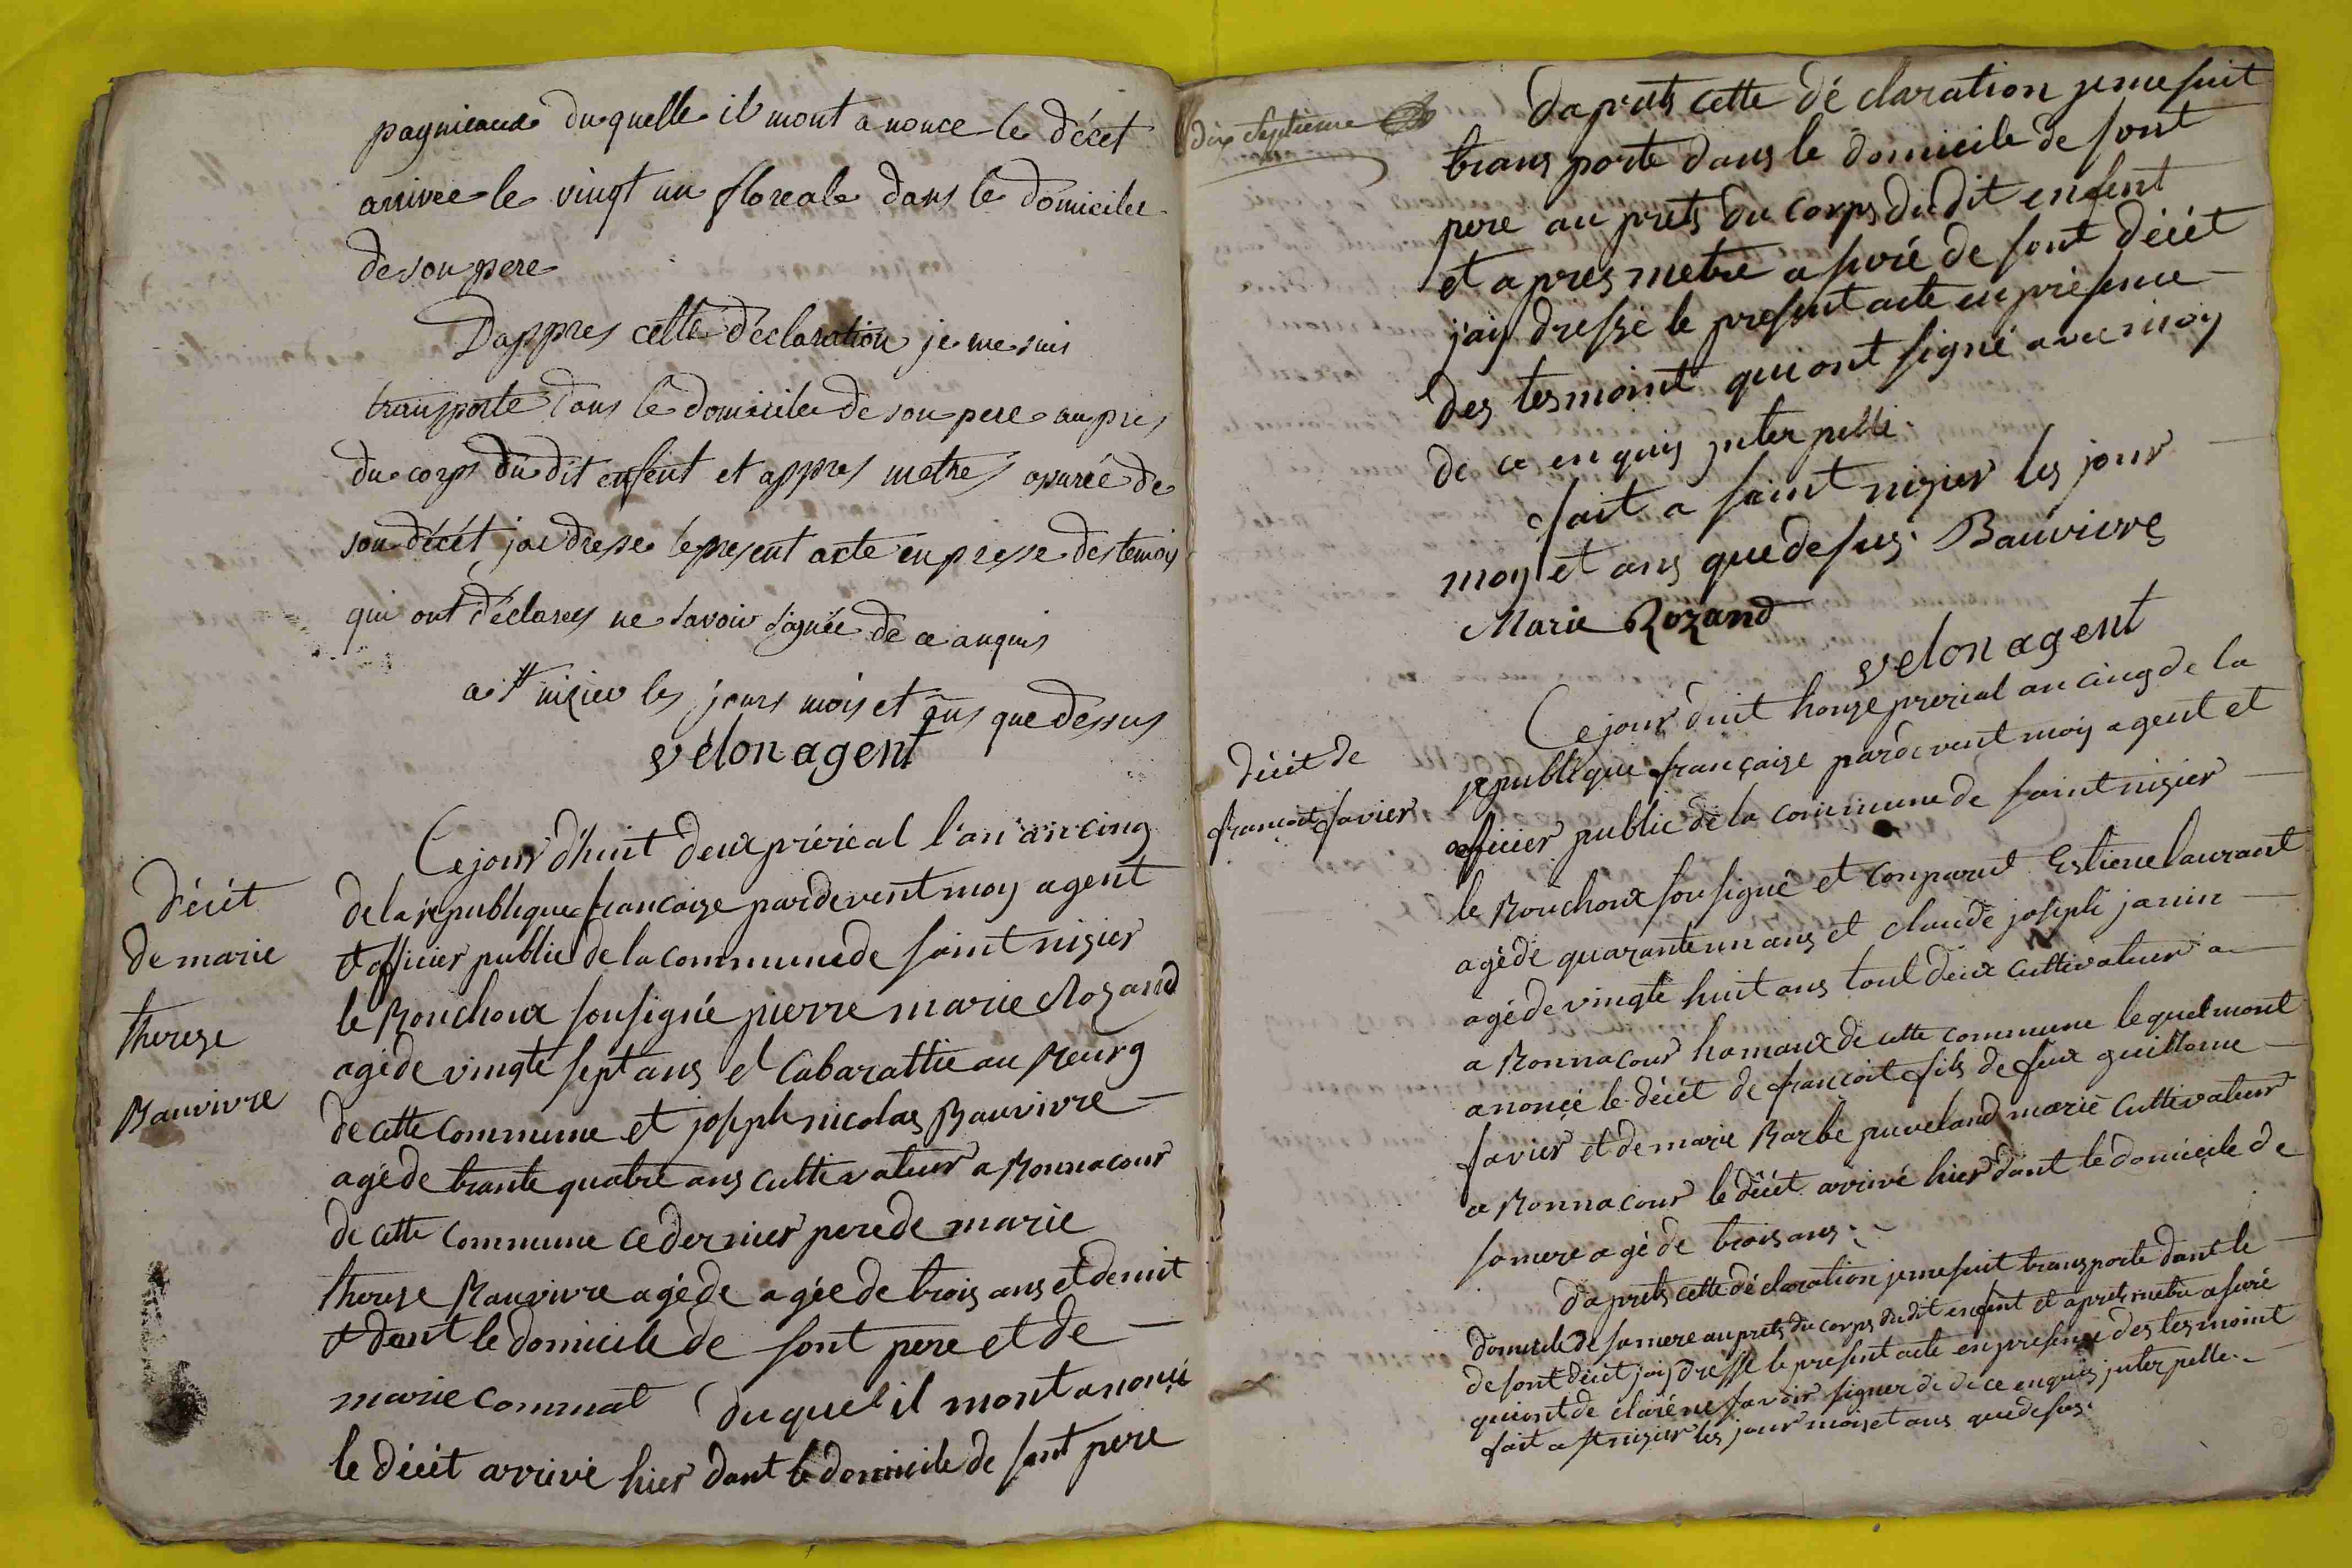 pagnieaux duquelle il mont anonce le décet
arrivee le vingt un floreale dans le domicilee
de son pere
Dappres cette déclaration je me suis
transporte dans le domicilee de son pere aupres
du corps du dit enfent et appres metres asurée de
son décét jae dresse le present acte en presse des temois
qui ont déclarés ne savoir signée de ce anquis
a st nizier les jours mois et ans que dessus
vélon agent
décét
de marie
thereze
Bauvivre
Ce jour d'huit deux préréal l'an an cinq
de la republique francaize pardevent moy agent
et officier public de la commune de saint nizier
le Bouchoux sousigné pierre marie Rozand
agé de vingte sept ans et Cabarattie au Bourg
de cette commune et joseph nicolas Bauvivre
agé de trante quatre ans cultivateur a Bonnacour
de cette commune ce dernier pere de marie
thereze Bauvivre agé de agée de trois ans et demit
et dant le domicile de sont pere et de
marie commat duquel il mont anoncé
le décét arrivé hier dant le domicile de sont pere
dix septieme
Daprets cette déclaration je me suit
transporte dans le domicile de sont
pere au prets du corps dudit enfent
et apres metre asuré de sont décét
jay dressé le present acte en présence
des tesmoint qui ont signé avec moy
de ce enquis jnterpellé.
fait a saint nizier les jour
moy et ans que desus. Bauvivre
Marie Rozand
velon agent
décét de
francoit favier
Ce jour duit honze prerial an cinq de la
republique françaize pardevent moy agent et
officier public de la commune de saint nizier
le Bouchoux sousigné et conparut Estiene laurant
agé de quarante un ans et claude joseph janin
agé de vingte huit ans tout deux cultivateur a
a Bonnacour hamaux de cette commune lequel mont
anoncé le décét de francoit fils de feux guillome
favier et de marie Barbe puveland marié cultivateur
a Bonnacour le décét arrivé hier dant le domicile de
sa mere agé de trois ans.
Daprets cette déclaration je me suit transporte dant le
domicile de sa mere au prets du corps du dit enfent et aprets metre asuré
de sont décét jay dressé le present acte en presence des tesmoint
qui ont de claré ne savoir signer de de ce enquis jnterpelle.
fait a st nizier les jour mois et ans que desus.